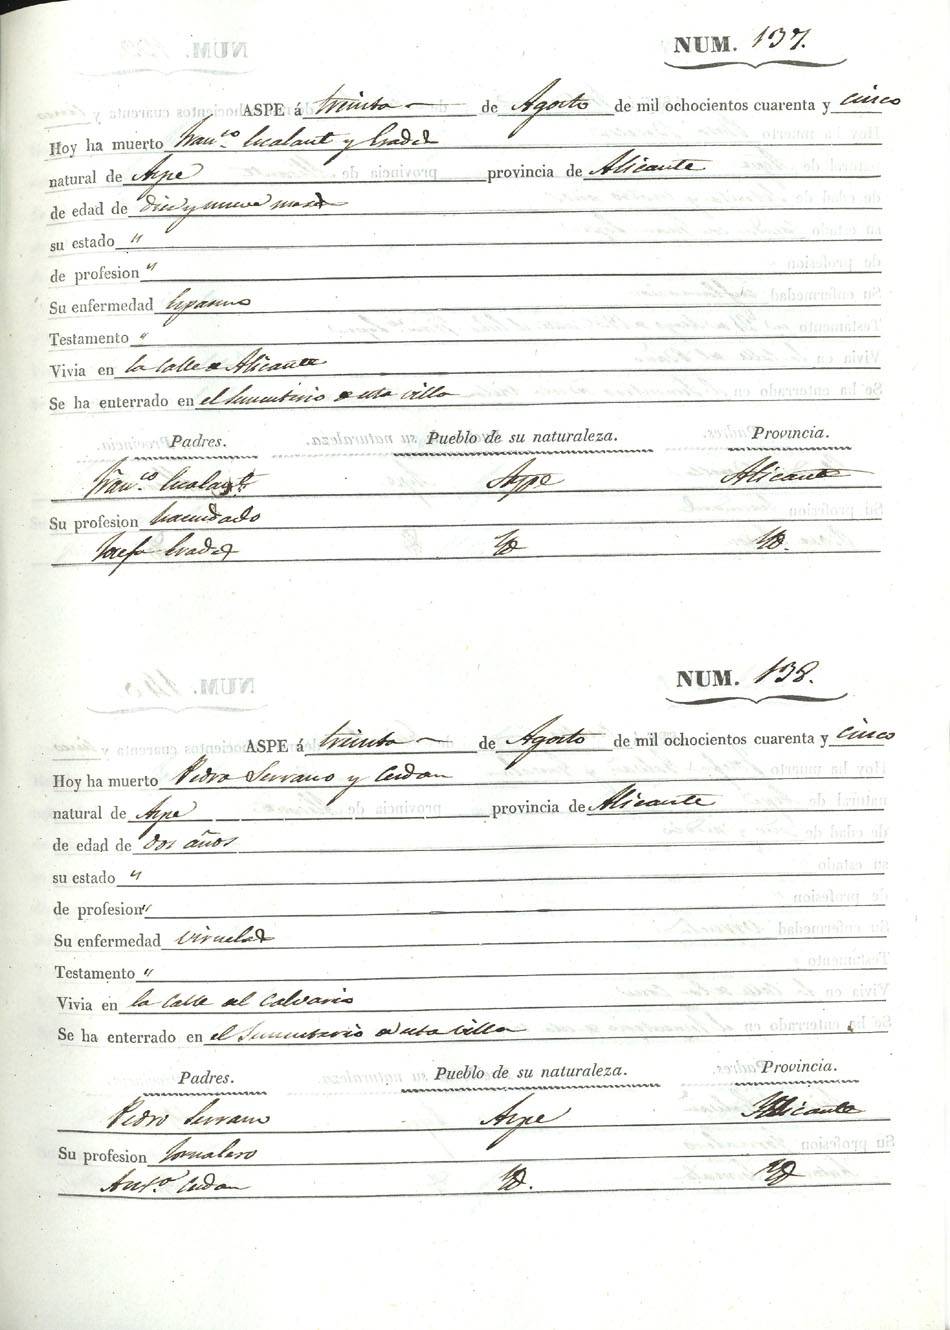 NUM. 137.
ASPE á treinta de Agosto de mil ochocientos cuarenta y cinco
Hoy ha muerto Fran.co y
natural de Aspe provincia de Alicante
de edad de diez y nueve meses
su estado "
de profesion "
Su enfermedad Espasmo
Testamento "
Vivia en la calle de Alicante
Se ha enterrado en el Sementerio de esta villa
Padres. Pueblo de su naturaleza. Provincia.
Fran.co Aspe Alicante
Su profesion hacendado
Josefa Id Id.
NUM. 138.
ASPE á treinta de Agosto de mil ochocientos cuarenta y cinco
Hoy ha muerto Pedro Serrano y Cerdan
natural de Aspe provincia de Alicante
de edad de dos años
su estado "
de profesion "
Su enfermedad viruelas
Testamento "
Vivia en la calle del Calvario
Se ha enterrado en el Sementerio de esta villa
Padres. Pueblo de su naturaleza. Provincia.
Pedro Serrano Aspe Alicante
Su profesion Jornalero
Ant.a Cerdan Id. Id